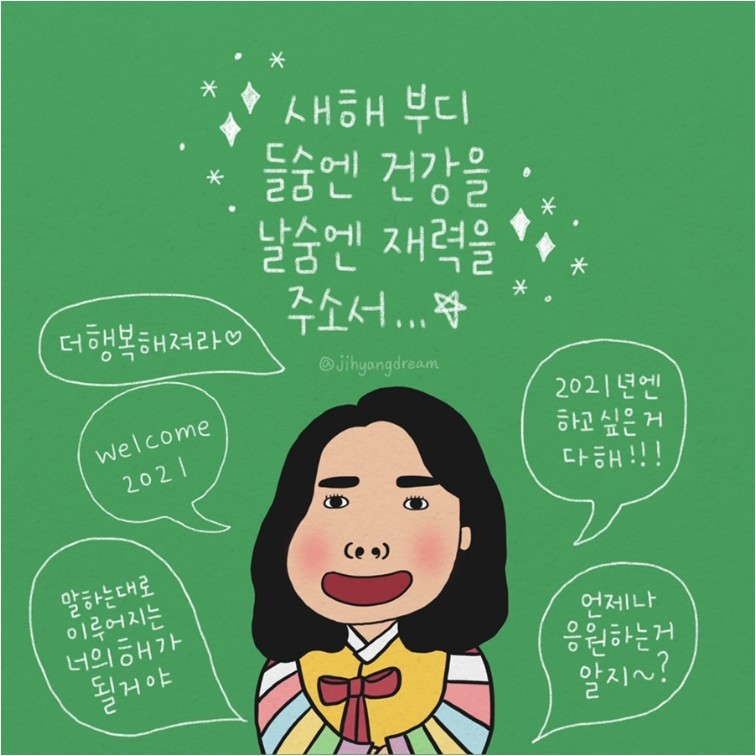 새해 부디
들숨엔 건강을
날숨엔 재력을
주소서...☆
@jihyangdream
더 행복해져라♡
welcome
2021
2021년엔
하고싶은거
다해!!!
말하는대로
이루어지는
너의 해가
될거야
언제나
응원하는거
알지~?